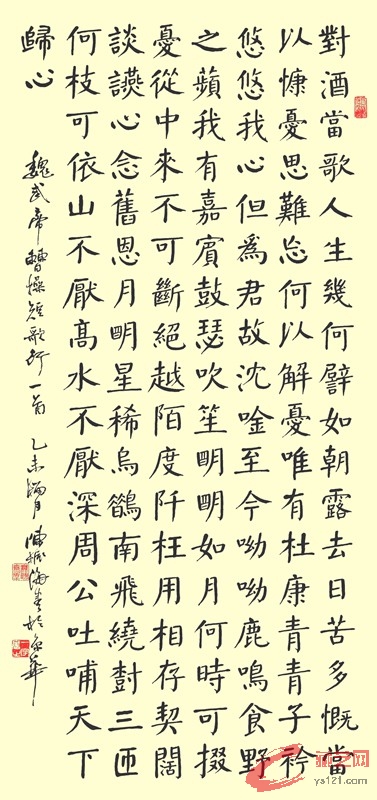 對酒當歌人生幾何譬如朝露去日苦多慨當
以慷憂思難忘何以解憂唯有杜康青青子衿
悠悠我心但為君故沈唫至今呦呦鹿鳴食野
之蘋我有嘉賓鼓瑟吹笙明明如月何時可掇
憂從中來不可斷絕越陌度阡枉用相存契闊
談讌心念舊恩月明星稀烏鵲南飛繞尌三匝
何枝可依山不厭高水不厭深周公吐哺天下
歸心
魏武帝曹操短歌行一首 乙未
ys121.com